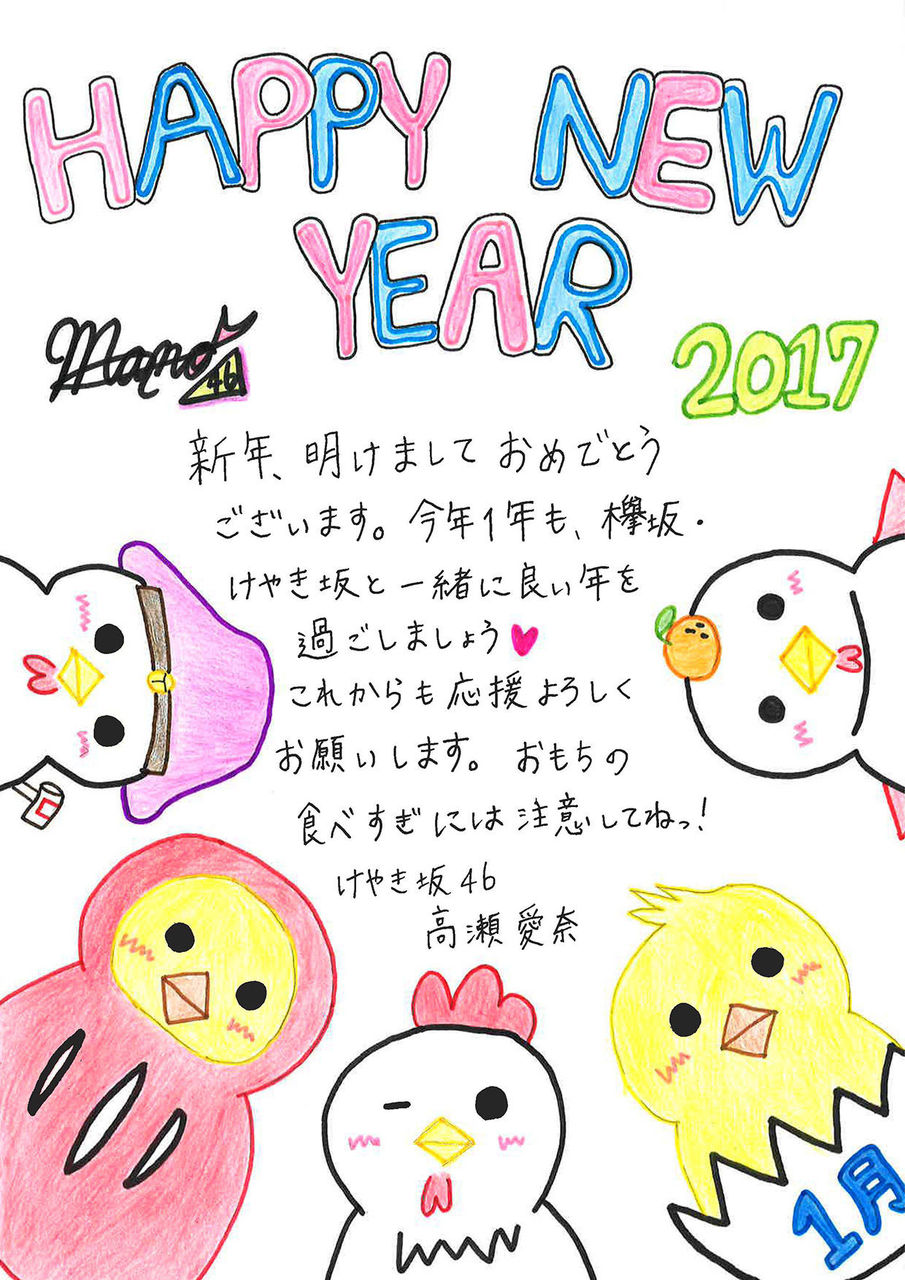 HAPPY NEW
YEAR
Mano♪
46
2017
新年、明けまして おめでとう
ございます。今年1年も、欅坂・
けやき坂と一緒に良い年を
過ごしましょう♥
これからも応援よろしく
お願いします。おもちの
食べすぎには注意してねっ!
けやき坂46
高瀬愛奈
1月